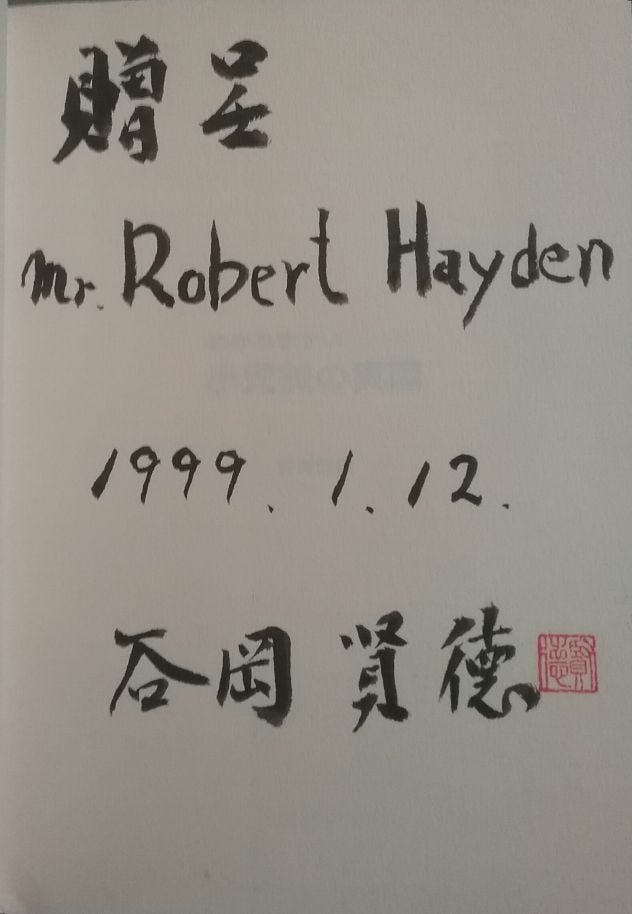 贈呈
Mr. Robert Hayden
1999. 1. 12.
谷岡 賢徳
賢徳